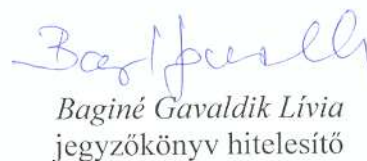 Baginé Gavaldik Lívia
jegyzőkönyv hitelesítő